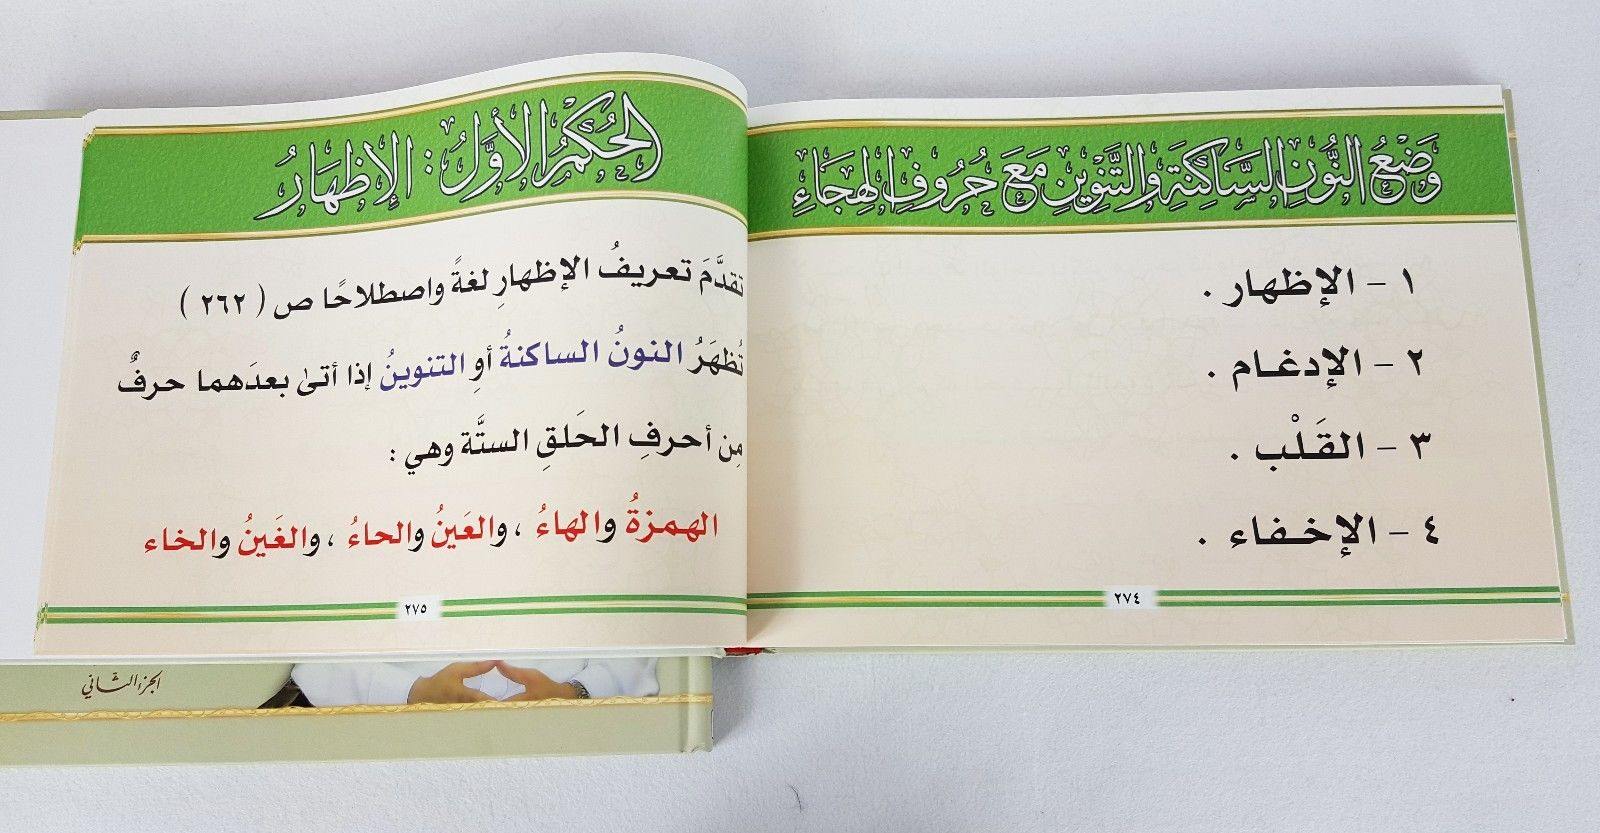 وَضْعُ النُّونِ السَّاكِنَةِ وَالتَّنْوِينِ مَعَ حُرُوفِ الهِجَاءِ
١ - الإظهار .
٢ - الإدغام .
٣ - القَلْب .
٤ - الإخفاء .
٢٧٤
الحُكْمُ الأَوَّلُ : الإِظْهَارُ
تقدَّمَ تعريفُ الإظهارِ لغةً واصطلاحًا ص ( ٢٦٢ )
تُظهَرُ النونُ الساكنةُ أوِ التنوينُ إذا أتىٰ بعدَهما حرفٌ
مِن أحرفِ الحَلقِ الستَّة وهي :
الهمزةُ والهاءُ ، والعَينُ والحاءُ ، والغَينُ والخاء
٢٧٥
الجزء الثاني